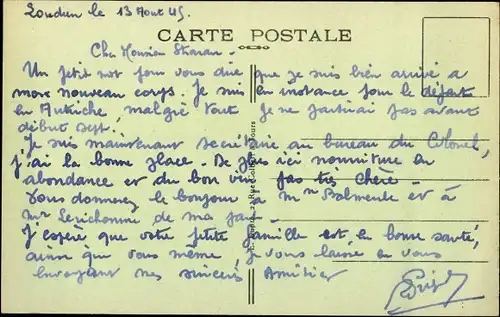 Loudun le 13 Aout 45.
CARTE POSTALE
Cher Monsieur
Un petit mot pour vous dire que je suis bien arrivé a
mon nouveau corps. Je suis en instance pour le départ
en Autriche, malgré tout je ne partirai pas avant
début sept.
Je suis maintenant secrétaire au bureau du Colonel,
j'ai la bonne place. De plus ici nourriture en
abondance et du bon vin pas très chère.
Vous donnerez le bonjour a Mme et à
Mr de ma part.
J'espère que votre petite famille est en bonne santé,
ainsi que vous même, je vous laisse en vous
envoyant mes sincères Amitiés